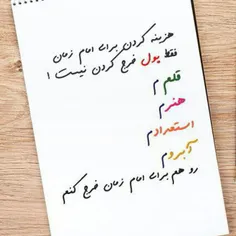 هزینه کردن برای امام زمان
فقط پول خرج کردن نیست !
قلمم
هنرم
استعدادم
آبروم
رو هم برای امام زمان خرج کنم